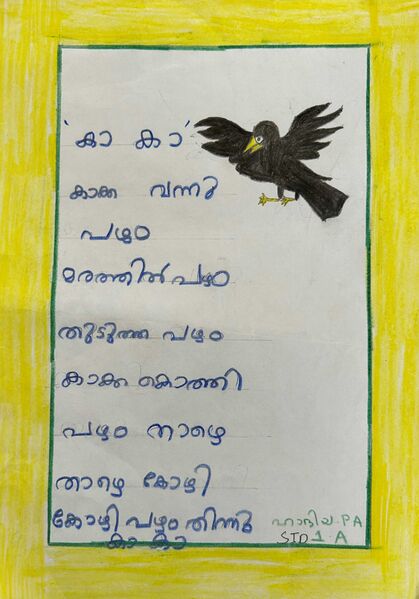 'കാ കാ'
കാക്ക വന്നു
പഴം
മരത്തിൽ പഴം
തുടുത്ത പഴം
കാക്ക കൊത്തി
പഴം താഴെ
താഴെ കോഴി
കോഴി പഴം തിന്നു
കാ കാ
ഹാദിയ.PA
STD 1 A